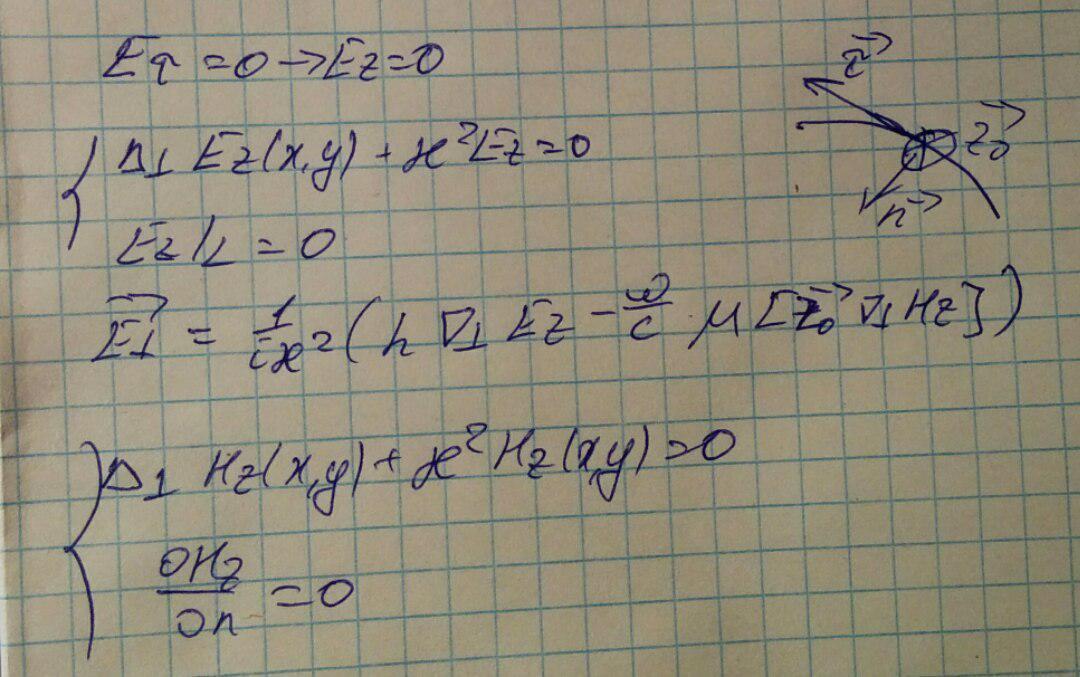 Eτ = 0 → Ez = 0
Δ⊥ Ez(x,y) + ϰ²Ez = 0
Ez|L = 0
E⊥→ = 1/(iϰ²) (h ∇⊥ Ez - ω/c · μ [z₀→ ∇⊥ Hz])
Δ⊥ Hz(x,y) + ϰ² Hz(x,y) = 0
∂Hz/∂n = 0
τ→
z₀→
n→